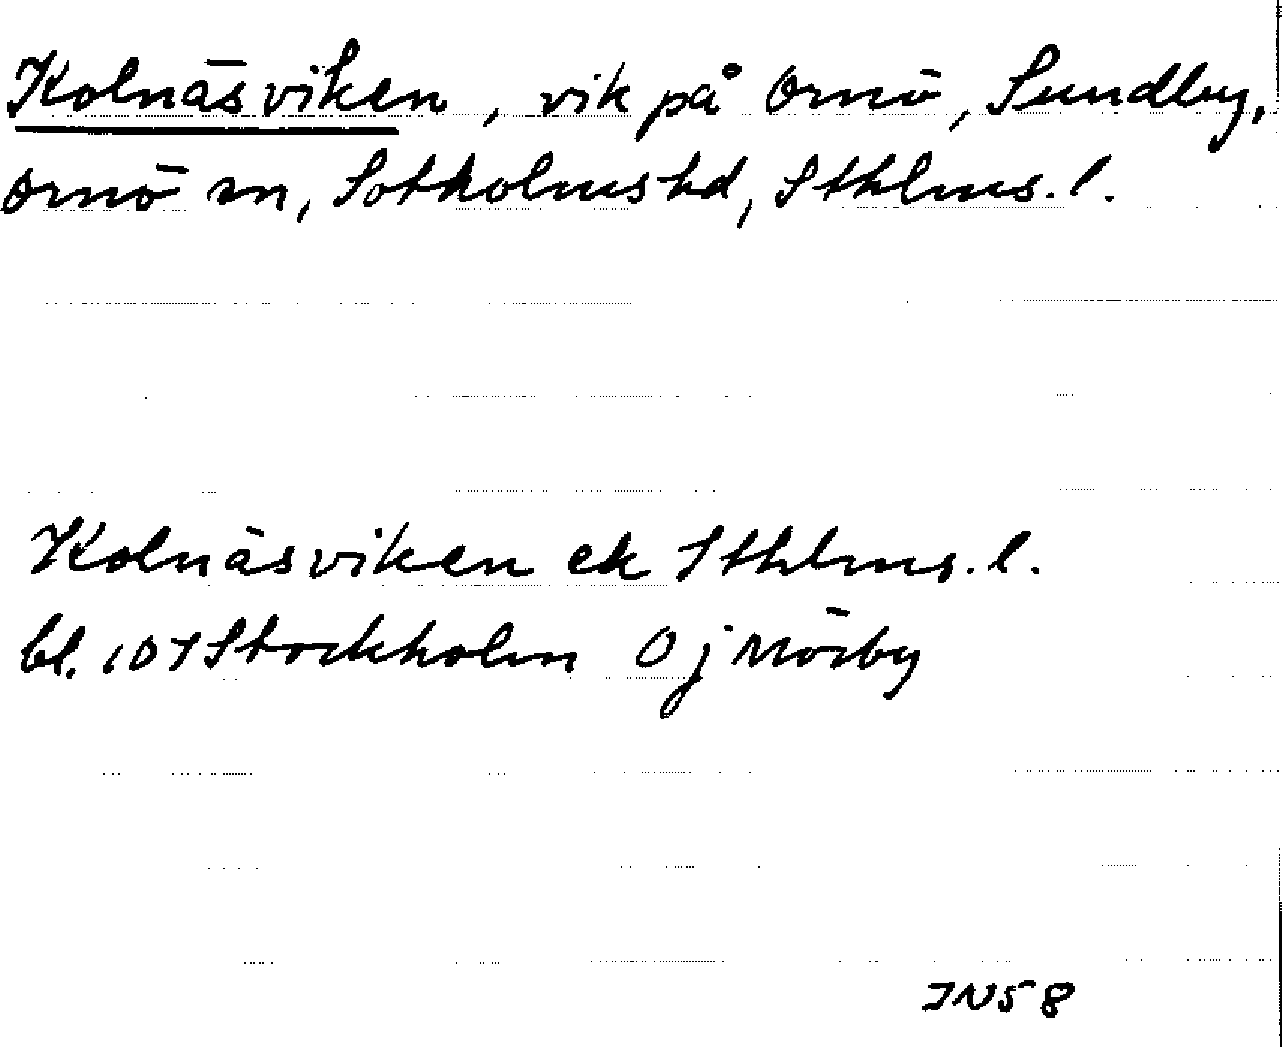 Kolnäsviken, vik på Ornö, Sundby,
Ornö sn, Sotholms hd, Sthlms. l.
Kolnäsviken ek Sthlms. l.
bl. 107 Stockholm O j Mörby
JN58